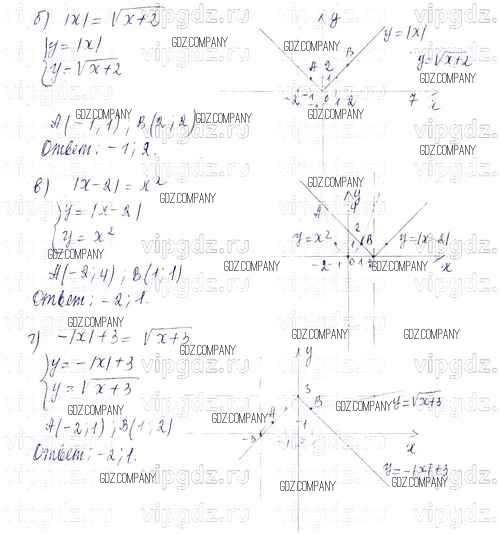 б) |x| = √x+2
{y = |x|
y = √x+2
A(-1; 1) ; B(2; 2)
Ответ: -1; 2.
y
y = |x|
y = √x+2
A 2 B
1
-2 -1 0 1 2 7 x
в) |x-2| = x²
{y = |x-2|
y = x²
A(-2; 4) ; B(1; 1)
Ответ: -2; 1.
y
4
A
2
y = x² 1 B y = |x-2|
-2 -1 0 1 2 x
г) -|x|+3 = √x+3
{y = -|x|+3
y = √x+3
A(-2; 1) ; B(1; 2)
Ответ: -2; 1.
y
3
A B y = √x+3
1
-3 -1 1 x
y = -|x|+3
GDZ.COMPANY
vipgdz.ru